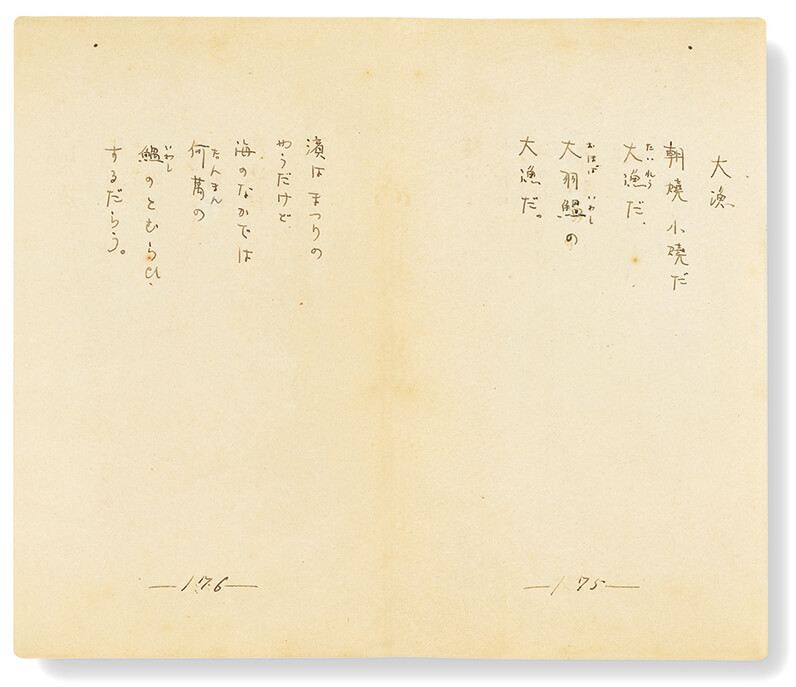 大漁
朝燒小燒だ
大漁だ、
大羽鰮の
大漁だ。
―175―
濱はまつりの
やうだけど
海のなかでは
何萬の
鰮のとむらひ、
するだらう。
―176―